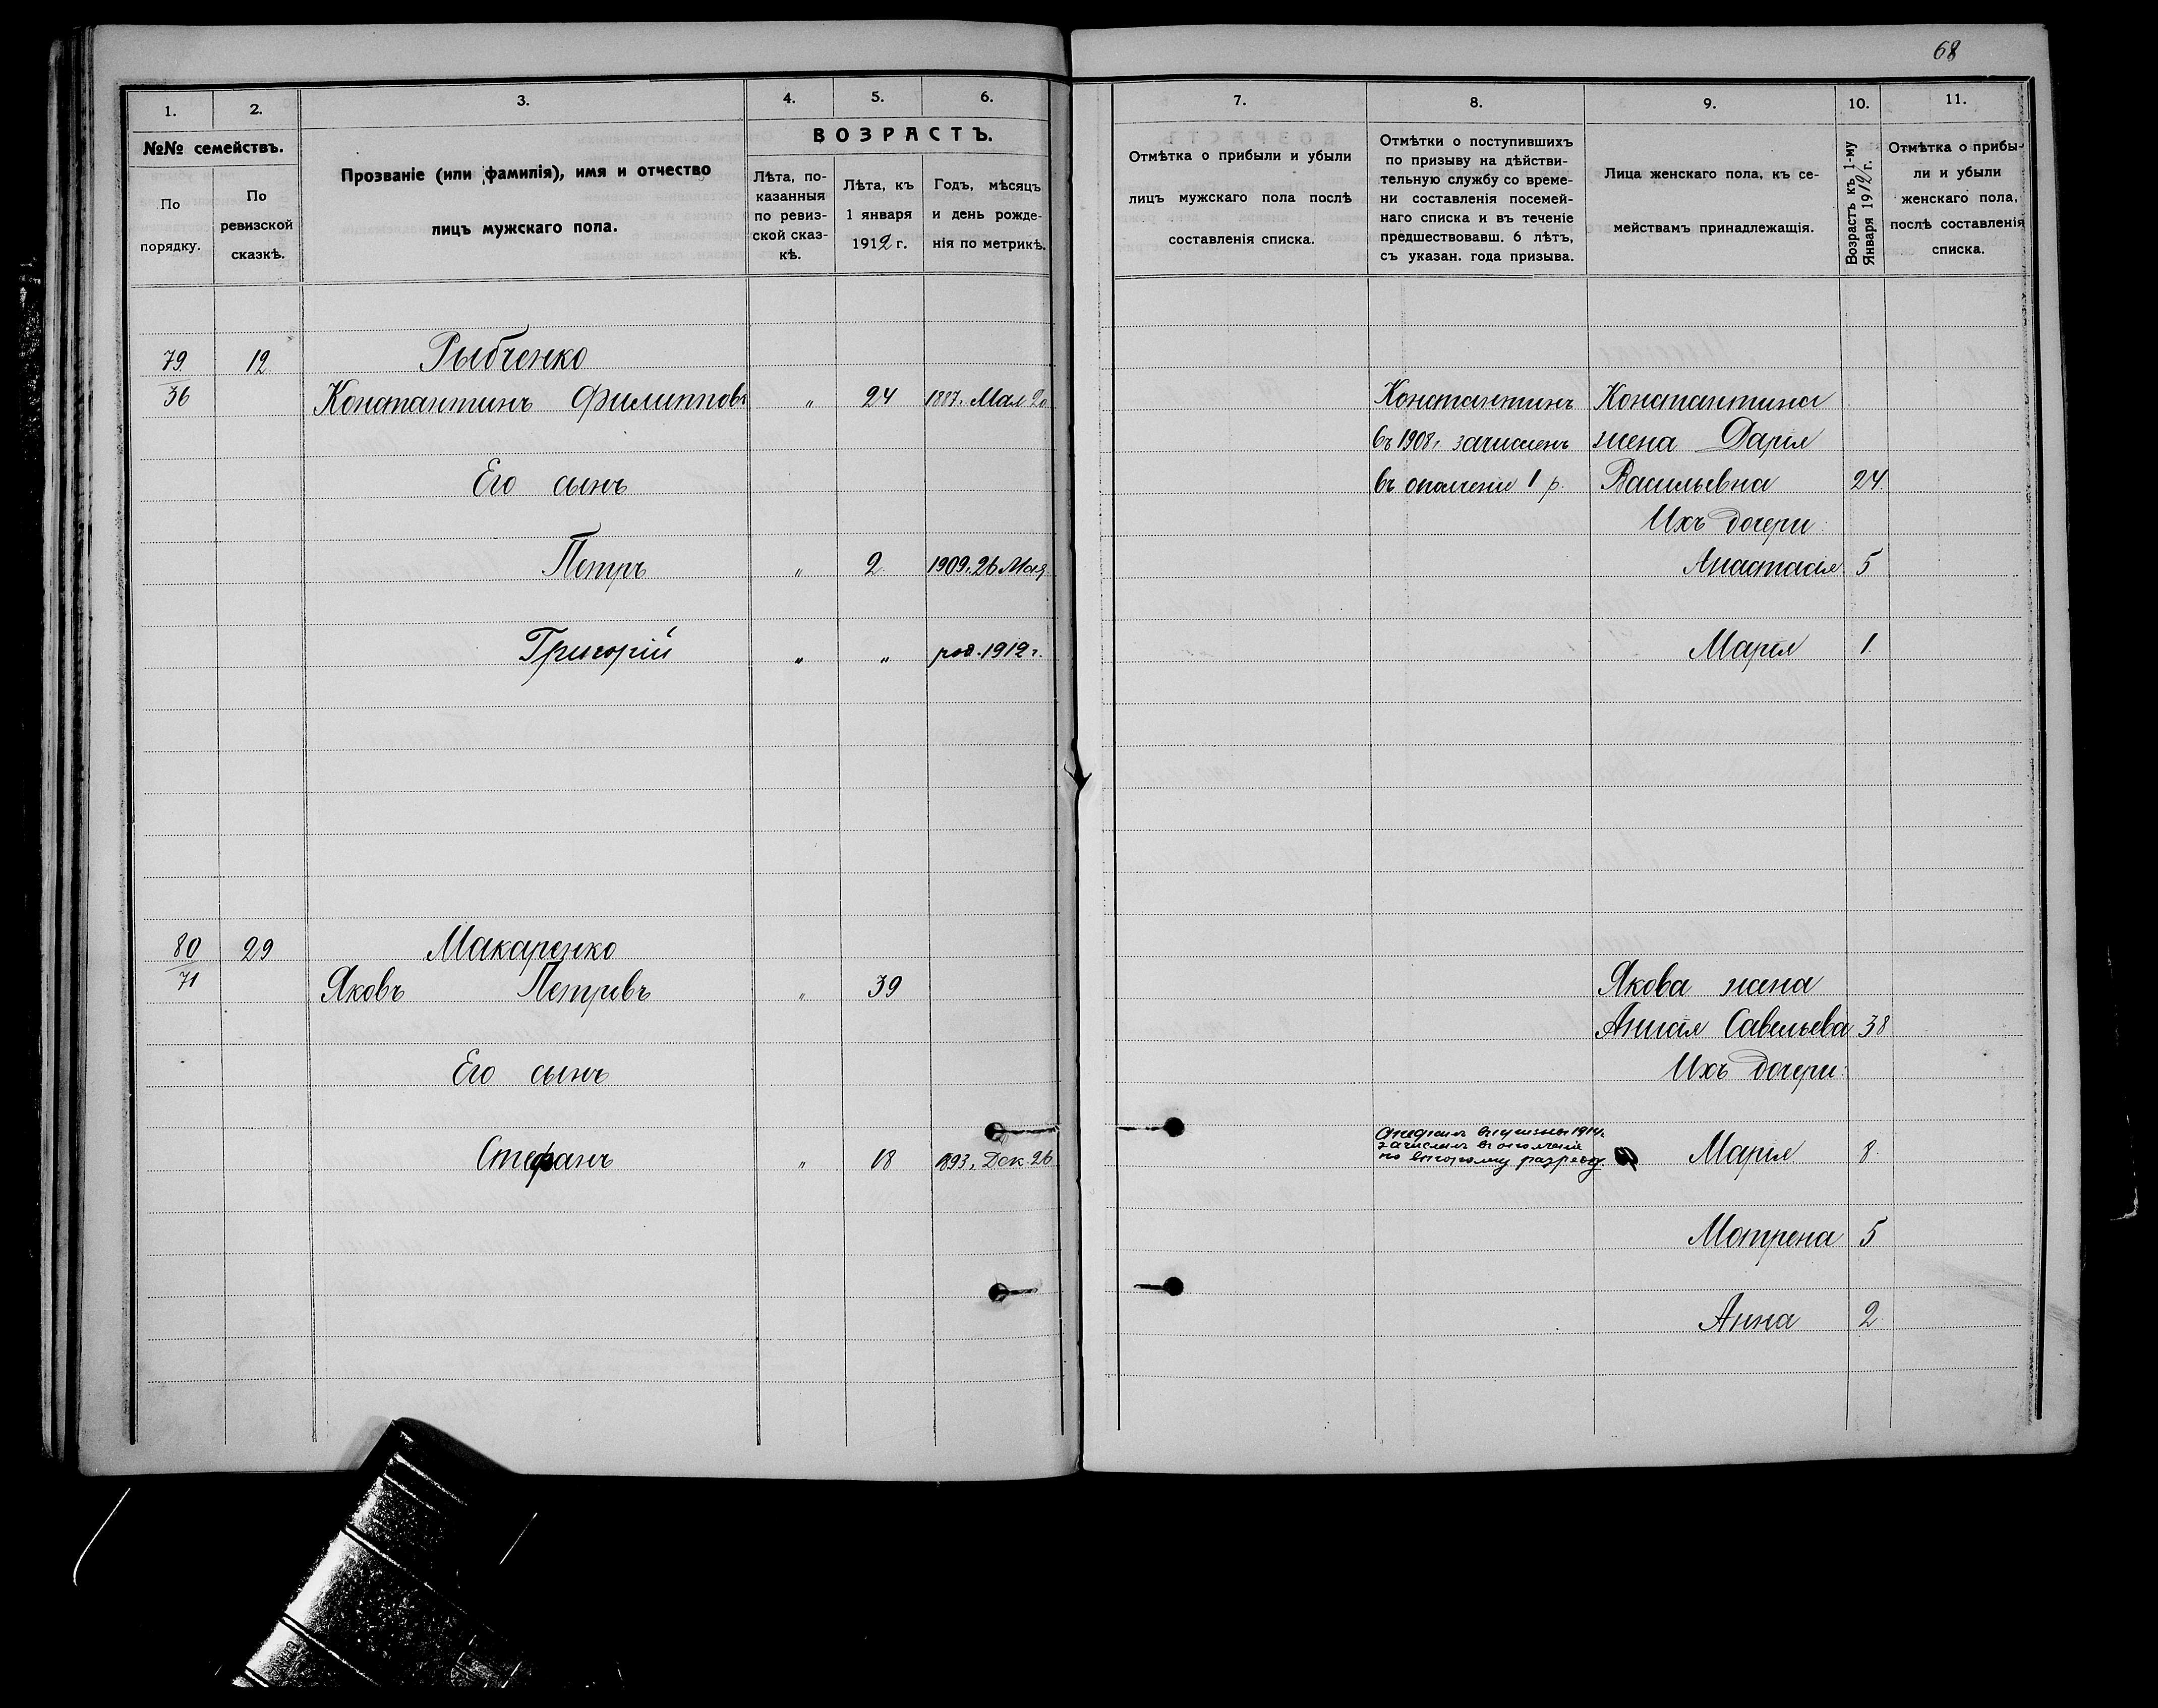 68
1.
2.
3.
4.
5.
6.
№№ семействъ.
По порядку.
По ревизской сказкѣ.
Прозваніе (или фамилія), имя и отчество
лицъ мужскаго пола.
ВОЗРАСТЪ.
Лѣта, по-
казанныя
по ревиз-
ской сказ-
кѣ.
Лѣта, къ
1 января
1912 г.
Годъ, мѣсяцъ
и день рожде-
нія по метрикѣ.
7.
8.
9.
10.
11.
Отмѣтка о прибыли и убыли
лицъ мужскаго пола послѣ
составленія списка.
Отмѣтки о поступившихъ
по призыву на дѣйстви-
тельную службу со време-
ни составленія посемей-
наго списка и въ теченіе
предшествовавш. 6 лѣтъ,
съ указан. года призыва.
Лица женскаго пола, къ се-
мействамъ принадлежащія.
Возрастъ къ 1-му
Января 1912 г.
Отмѣтка о прибы-
ли и убыли
женскаго пола,
послѣ составленія
списка.
79 12 Рыбченко
36 Константинъ Филипповъ " 24 1887. Мая 20
Его сынъ
Петръ " 2 1909. 26 Мая
Григорій " " род. 1912 г.
Константинъ
въ 1908г. зачисленъ
въ ополченіе 1 р.
Константина
жена Дарія
Васильевна 24.
Ихъ дочери:
Анастасія 5
Марія 1.
80 29 Макаренко
71 Яковъ Петровъ " 39
Его сынъ
Стефанъ " 18 1893. Дек 26
зачисленъ въ ополченіе
по второму разряду
Якова жена
Савельева 38
Ихъ дочери:
Марія 8.
Мотрена 5
Анна 2.